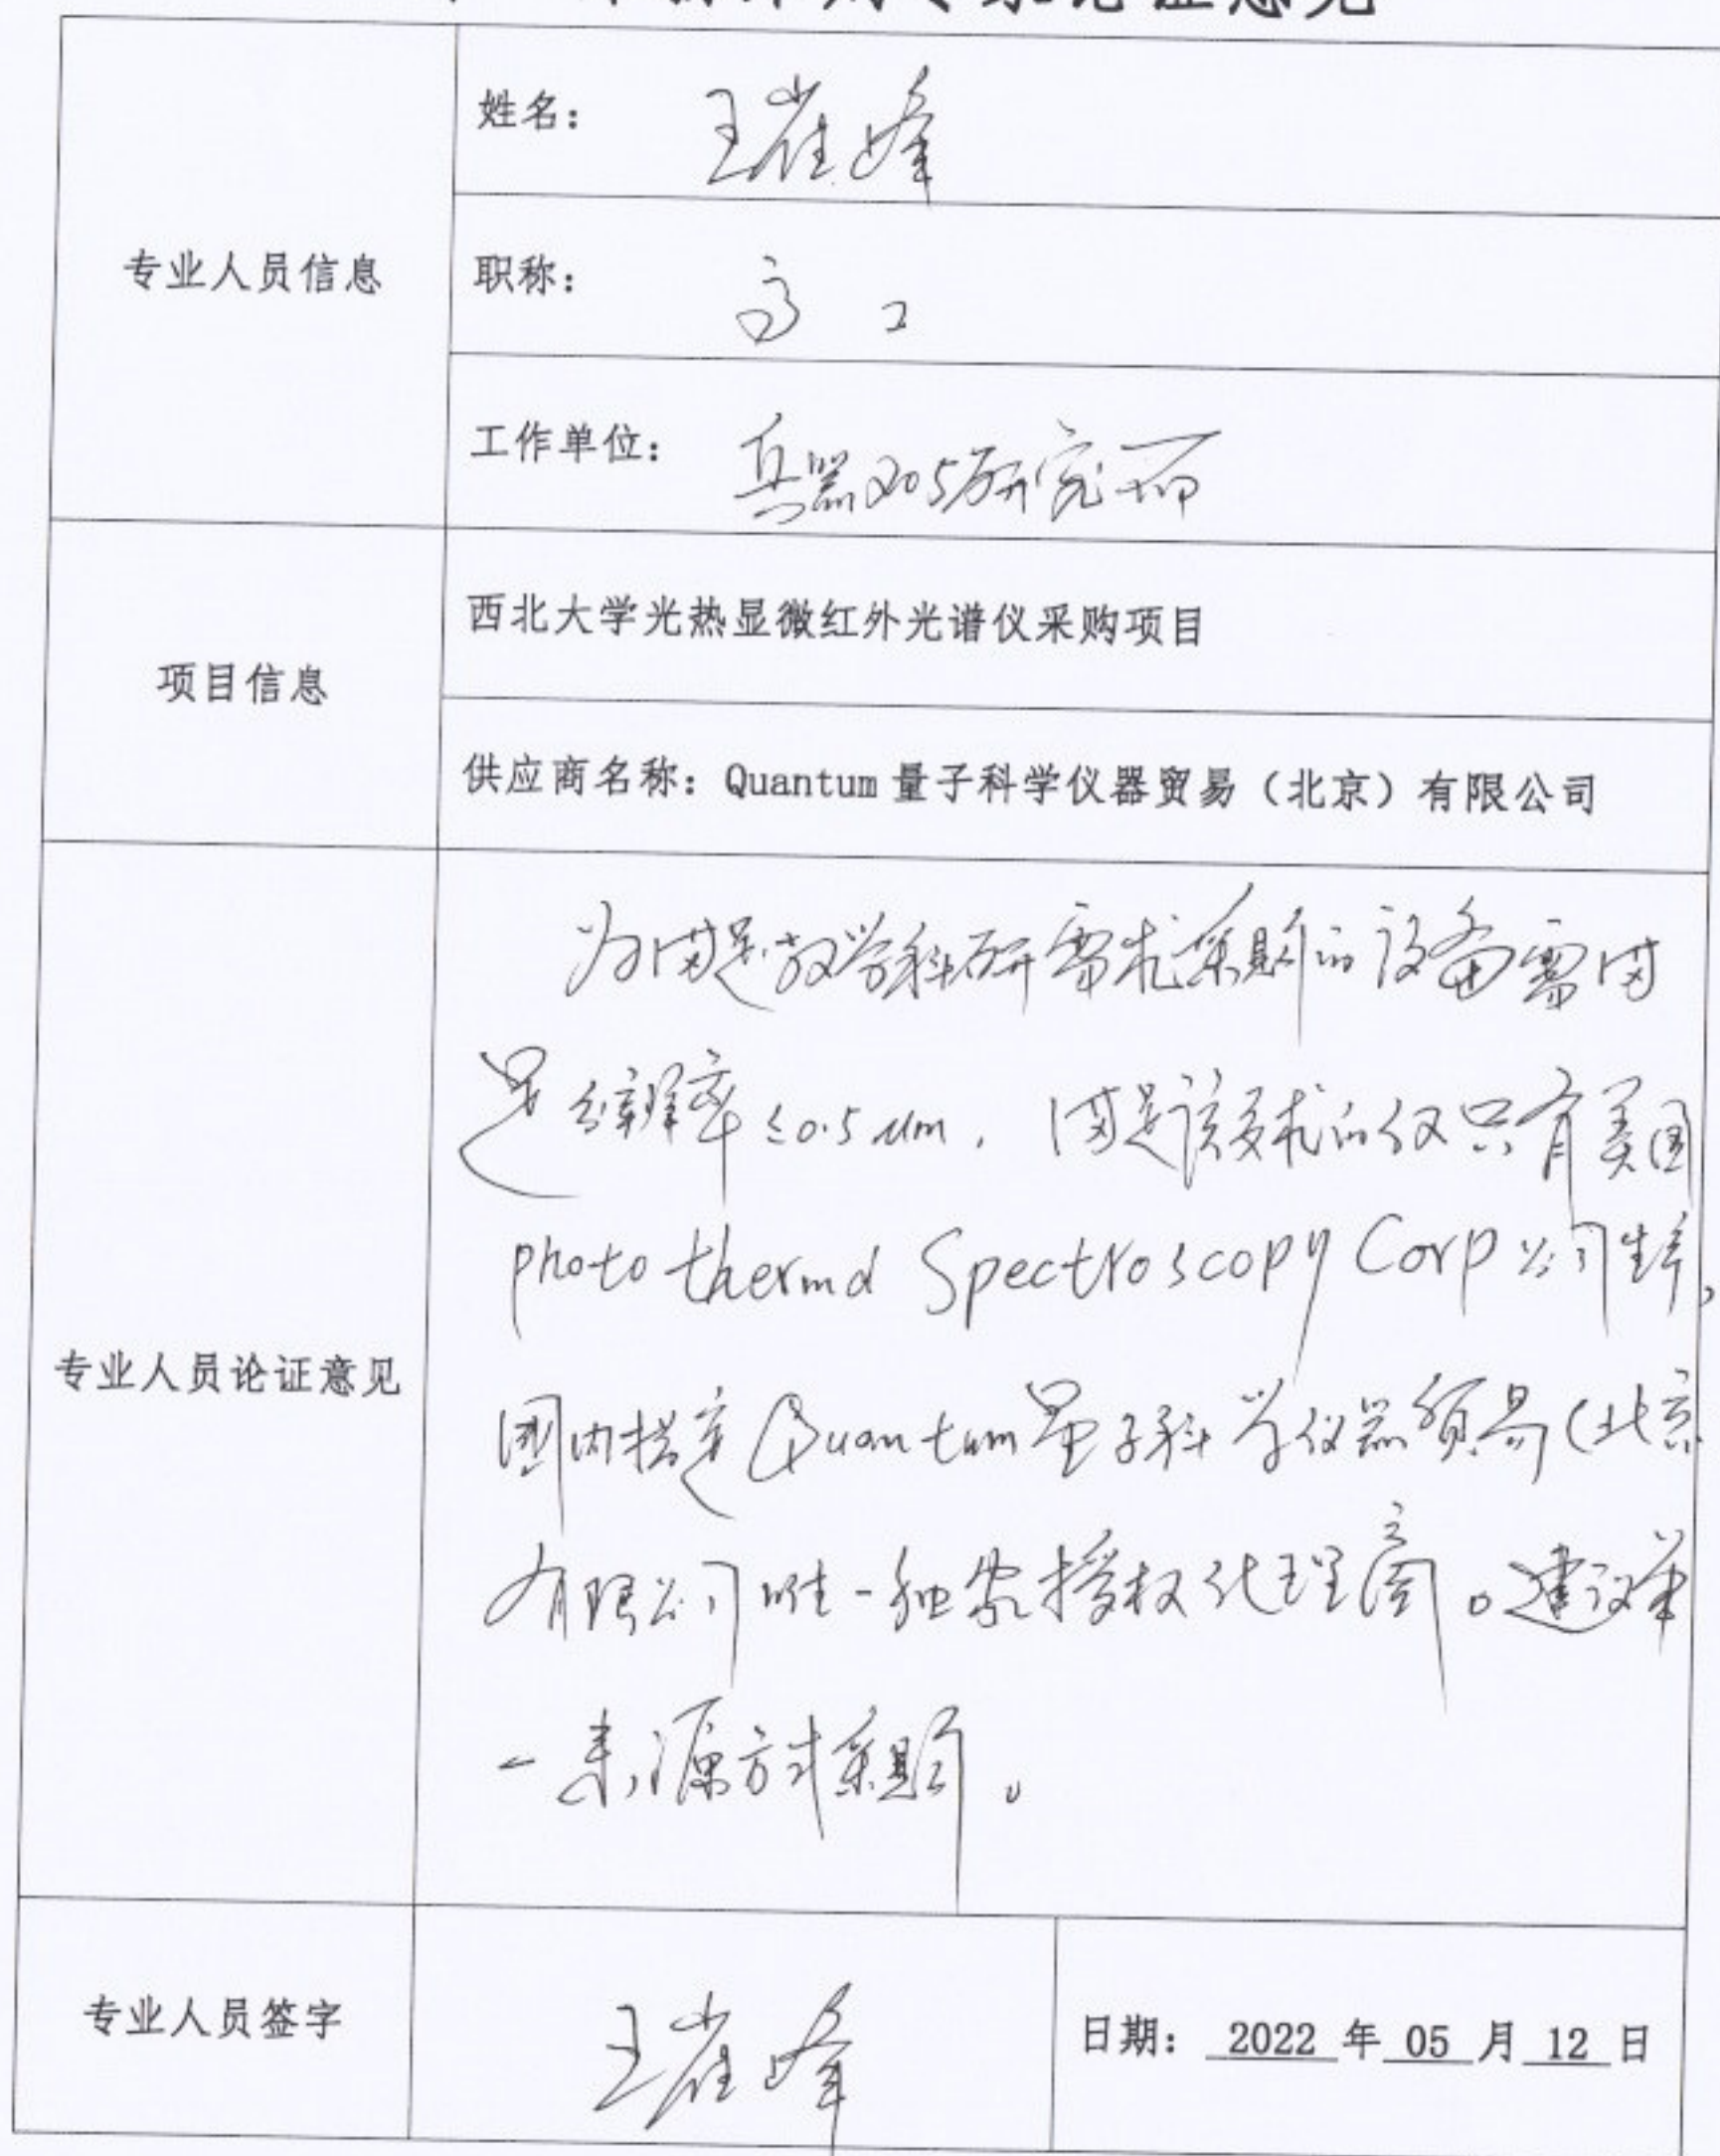 专家论证意见
专业人员信息
姓名：
王崔峰
职称：
高工
工作单位：
兵器205研究所
项目信息
西北大学光热显微红外光谱仪采购项目
供应商名称：Quantum 量子科学仪器贸易（北京）有限公司
专业人员论证意见
为满足教学科研需求采购的设备需满
足分辨率≤0.5μm，满足该要求的仅只有美国
photo thermal Spectroscopy Corp 公司生产，
国内指定Quantum量子科学仪器贸易（北京
有限公司唯一独家授权代理商。建议单
一来源方式采购。
专业人员签字
王崔峰
日期： 2022 年 05 月 12 日